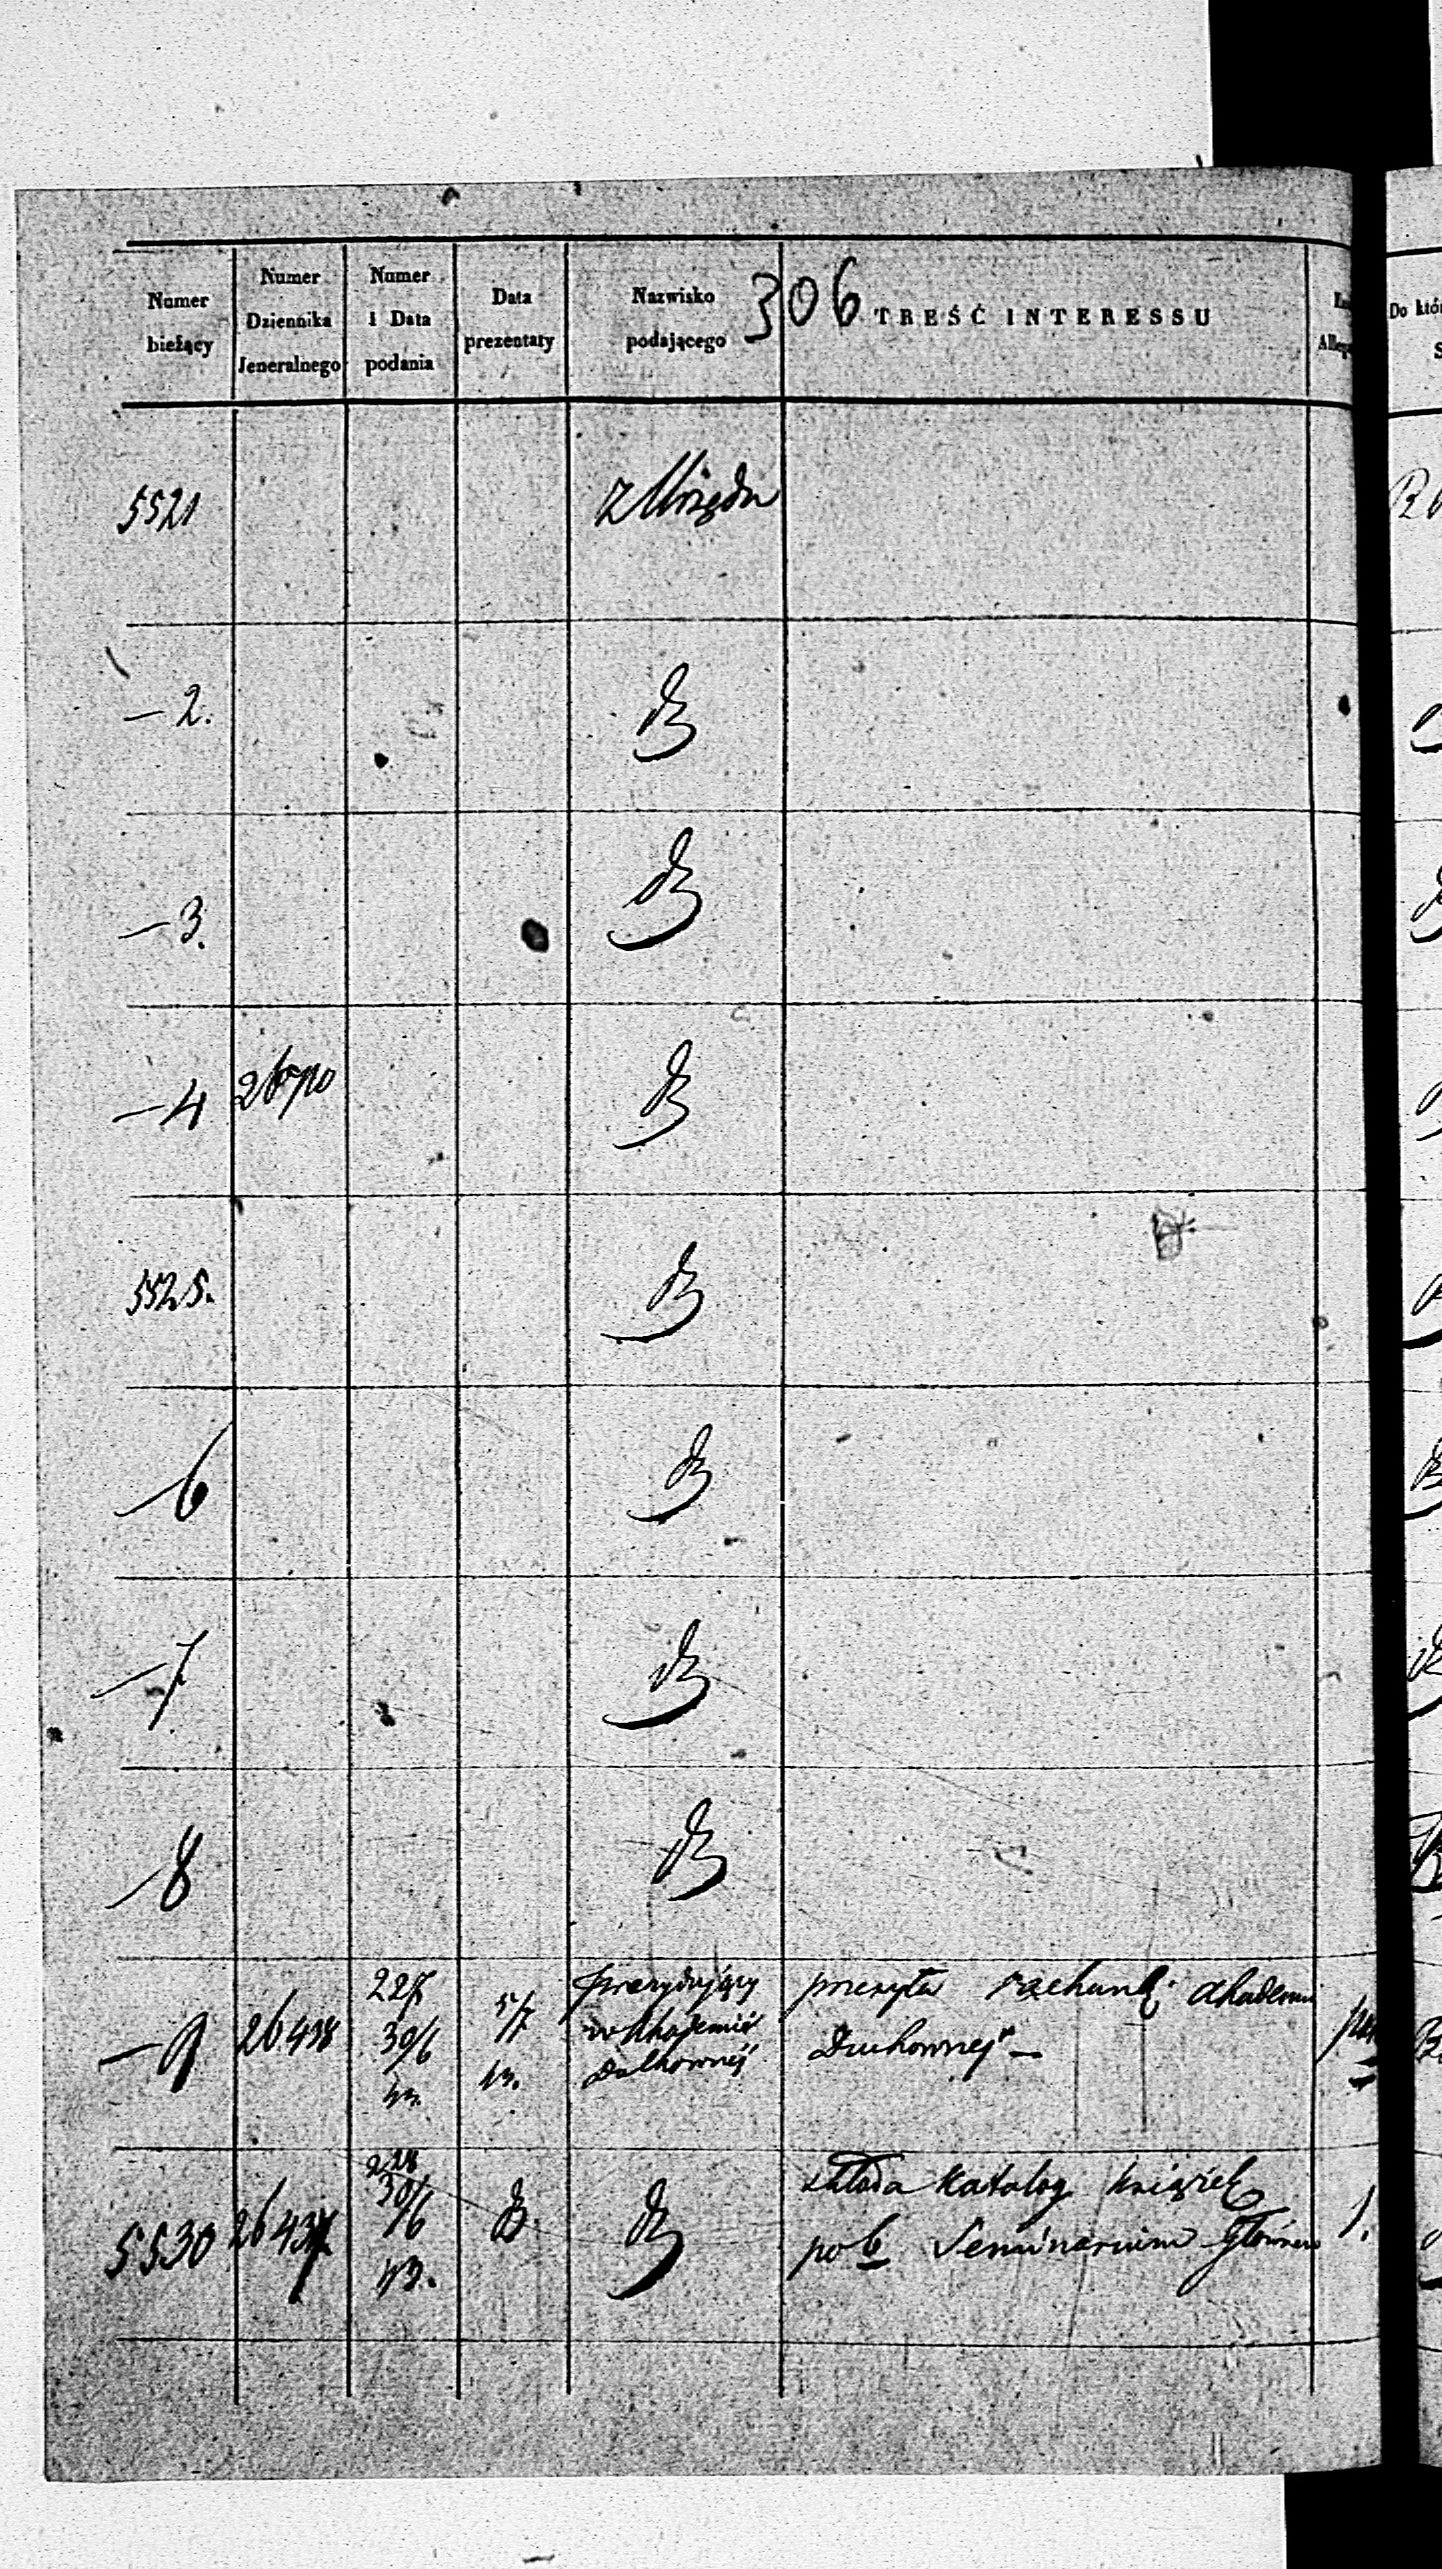 306
Numer bieżący
Numer Dziennika Jeneralnego
Numer i Data podania
Data prezentaty
Nazwisko podającego
TREŚĆ INTERESSU
Do któ
5521 z Urzędu
— 2. dz
— 3. dz
— 4 dz
5525. dz
— 6 dz
— 7 dz
— 8 dz
— 9 26438 227 30/6 5/7 Prezydujący w Akademii Duchownej
przesyła rachunki Akademii
Duchownej —
5530 26437 228 30/6 dz. dz
składa Katalog książek
po b. Seminarium Główném 1.